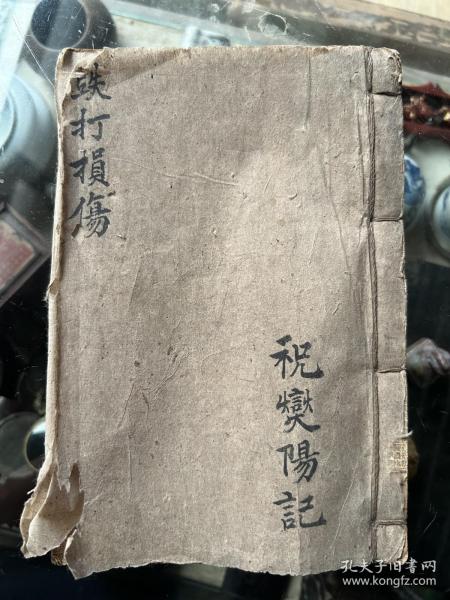 跌打損傷
祝爕陽記
孔夫子旧书网
www.kongfz.com